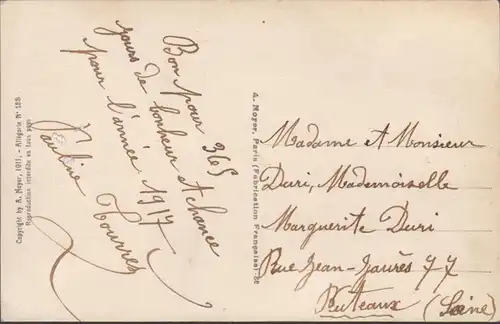 Bon pour 365
jours de bonheur et chance
pour l'année 1917
Pauline Tourres
Madame et Monsieur
Duri, Mademoiselle
Marguerite Duri
Rue Jean-Jaurès 77
Puteaux (Seine)
A. Noyer, Paris (Fabrication Française).
Copyright by A. Noyer, 1911. - Allégorie N° 128
Reproduction interdite en tous pays